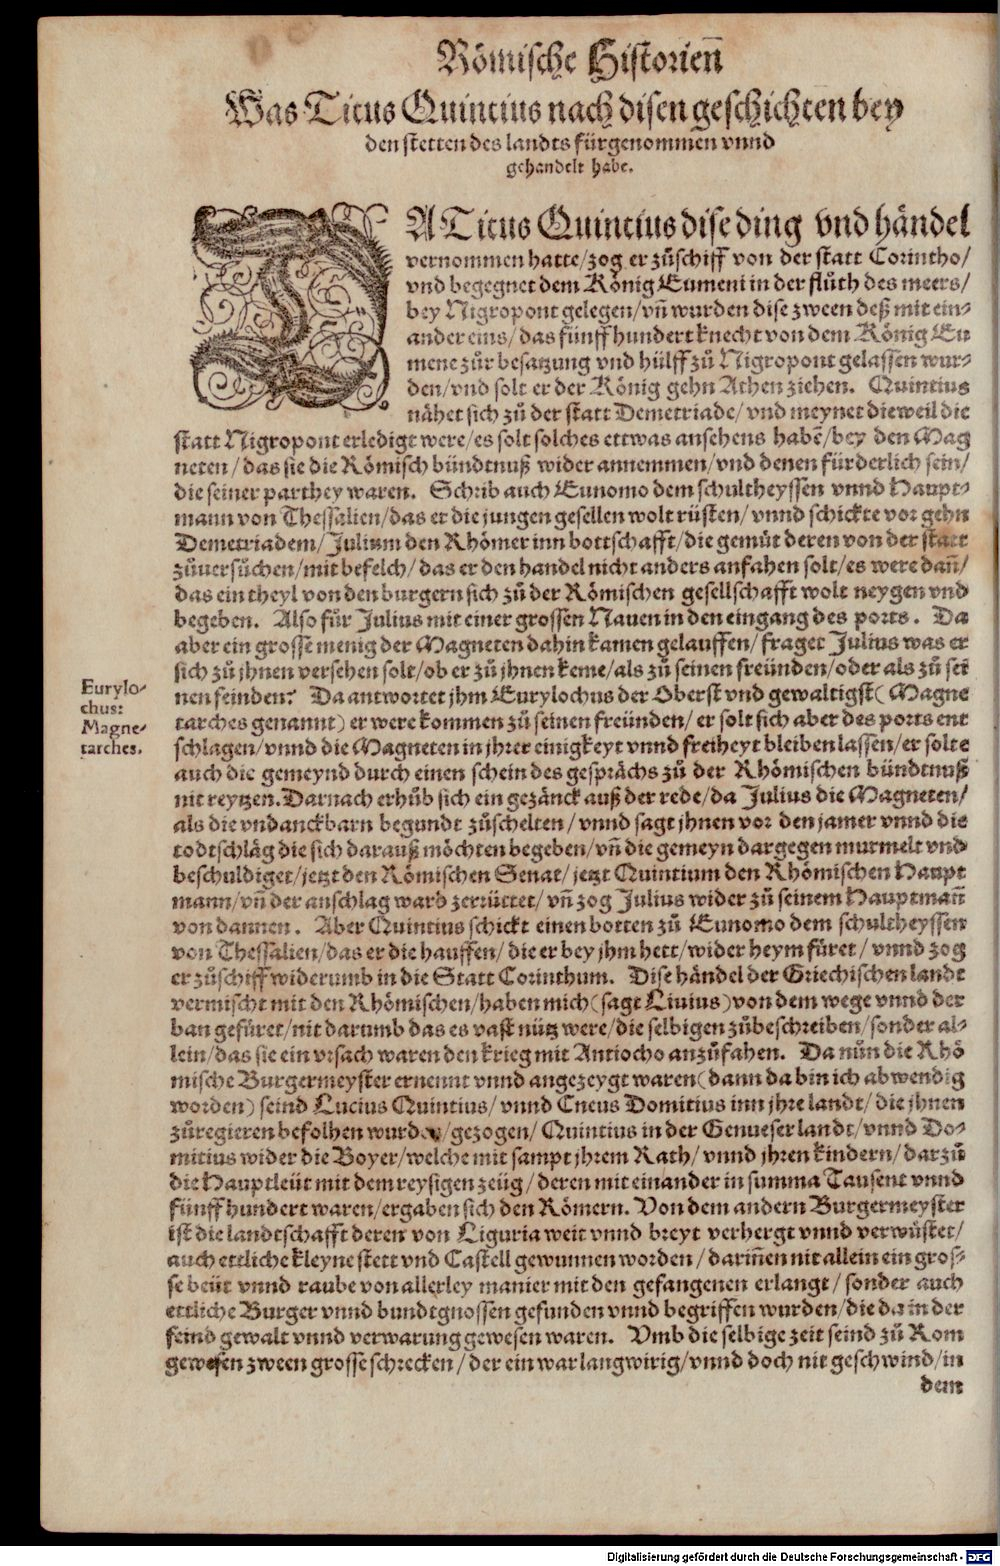 Römische Historienn̄
Was Titus Quintius nach disen geschichten bey
den stetten des landts fürgenommen vnnd
gehandelt habe.
DA Titus Quintius dise ding vnd händel
vernommen hatte/zog er zůschiff von der statt Corintho/
vnd begegnet dem König Eumeni in der flůth des meers/
bey Nigropont gelegen/vn̄ wurden dise zween deß mit ein-
ander eins/das fünff hundert knecht von dem König Eu
mene zůr besatzung vnd hülff zů Nigropont gelassen wur-
den/vnd solt er der König gehn Athen ziehen. Quintius
nähet sich zů der statt Demetriade/vnd meynet dieweil die
statt Nigropont erledigt were/es solt solches ettwas ansehens habē/bey den Mag
neten/das sie die Römisch bündtnuß wider annemmen/vnd denen fürderlich sein/
die seiner parthey waren. Schrib auch Eunomo dem schultheyssen vnnd Haupt-
mann von Thessalien/das er die jungen gesellen wolt rüsten/vnnd schickte vor gehn
Demetriadem/Julium den Rhömer inn bottschafft/die gemüt deren von der statt
zůuersůchen/mit befelch/das er den handel nicht anders anfahen solt/es were dan̄/
das ein theyl von den burgern sich zů der Römischen gesellschafft wolt neygen vnd
begeben. Also fůr Julius mit einer grossen Nauen in den eingang des ports. Da
aber ein grosse menig der Magneten dahin kamen gelauffen/fraget Julius was er
sich zů jhnen versehen solt/ob er zů jhnen keme/als zů seinen freünden/oder als zů sei
nen feinden? Da antwortet jhm Eurylochus der Oberst vnd gewaltigst(Magne
tarches genannt) er were kommen zů seinen freünden/er solt sich aber des ports ent
schlagen/vnnd die Magneten in jhrer einigkeyt vnnd freiheyt bleiben lassen/er solte
auch die gemeynd durch einen schein des gesprächs zů der Rhömischen bündtnuß
nit reytzen. Darnach erhůb sich ein gezänck auß der rede/da Julius die Magneten/
als die vndanckbarn begundt zůschelten/vnnd sagt jhnen vor den jamer vnnd die
todtschläg die sich darauß möchten begeben/vn̄ die gemeyn dargegen murmelt vnd
beschuldiget/jetzt den Römischen Senat/jetzt Quintium den Rhömischen Haupt
mann/vn̄ der anschlag ward zerrüttet/vn̄ zog Julius wider zů seinem Hauptman̄
von dannen. Aber Quintius schickt einen botten zů Eunomo dem schultheyssen
von Thessalien/das er die hauffen/die er bey jhm hett/wider heym füret/vnnd zog
er zůschiff widerumb in die Statt Corinthum. Dise händel der Griechischen landt
vermischt mit den Rhömischen/haben mich(sagt Liuius)von dem wege vnnd der
ban gefüret/nit darumb das es vast nütz were/die selbigen zůbeschreiben/sonder al-
lein/das sie ein vrsach waren den krieg mit Antiocho anzůfahen. Da nůn die Rhö
mische Burgermeyster ernennt vnnd angezeygt waren(dann da bin ich abwendig
worden) seind Lucius Quintius/vnnd Cneus Domitius inn jhre landt/die jhnen
zůregieren befolhen wurden/gezogen/Quintius in der Genueser landt/vnnd Do-
mitius wider die Boyer/welche mit sampt jhrem Rath/vnnd jhren kindern/darzů
die Hauptleüt mit dem reysigen zeüg/deren mit einander in summa Tausent vnnd
fünff hundert waren/ergaben sich den Römern. Von dem andern Burgermeyster
ist die landtschafft deren von Liguria weit vnnd breyt verhergt vnnd verwüstet/
auch ettliche kleyne stett vnd Castell gewunnen worden/darin̄en nit allein ein gros-
se beüt vnnd raube von allerley manier mit den gefangenen erlangt/sonder auch
ettliche Burger vnnd bundtgnossen gefunden vnnd begriffen wurden/die da in der
feind gewalt vnnd verwarung gewesen waren. Vmb die selbige zeit seind zů Rom
gewesen zween grosse schrecken/der ein war langwirig/vnnd doch nit geschwind/in
dem
Eurylo-
chus:
Magne-
tarches.
Digitalisierung gefördert durch die Deutsche Forschungsgemeinschaft - DFG